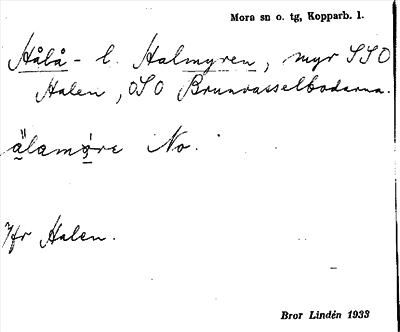 Mora sn o. tg, Kopparb. l.
Hålå- l. Halmyren, myr SSO
Halen, OSO Brunvasselbodarna.
älamo̤re No.
Jfr Halen.
Bror Lindén 1933